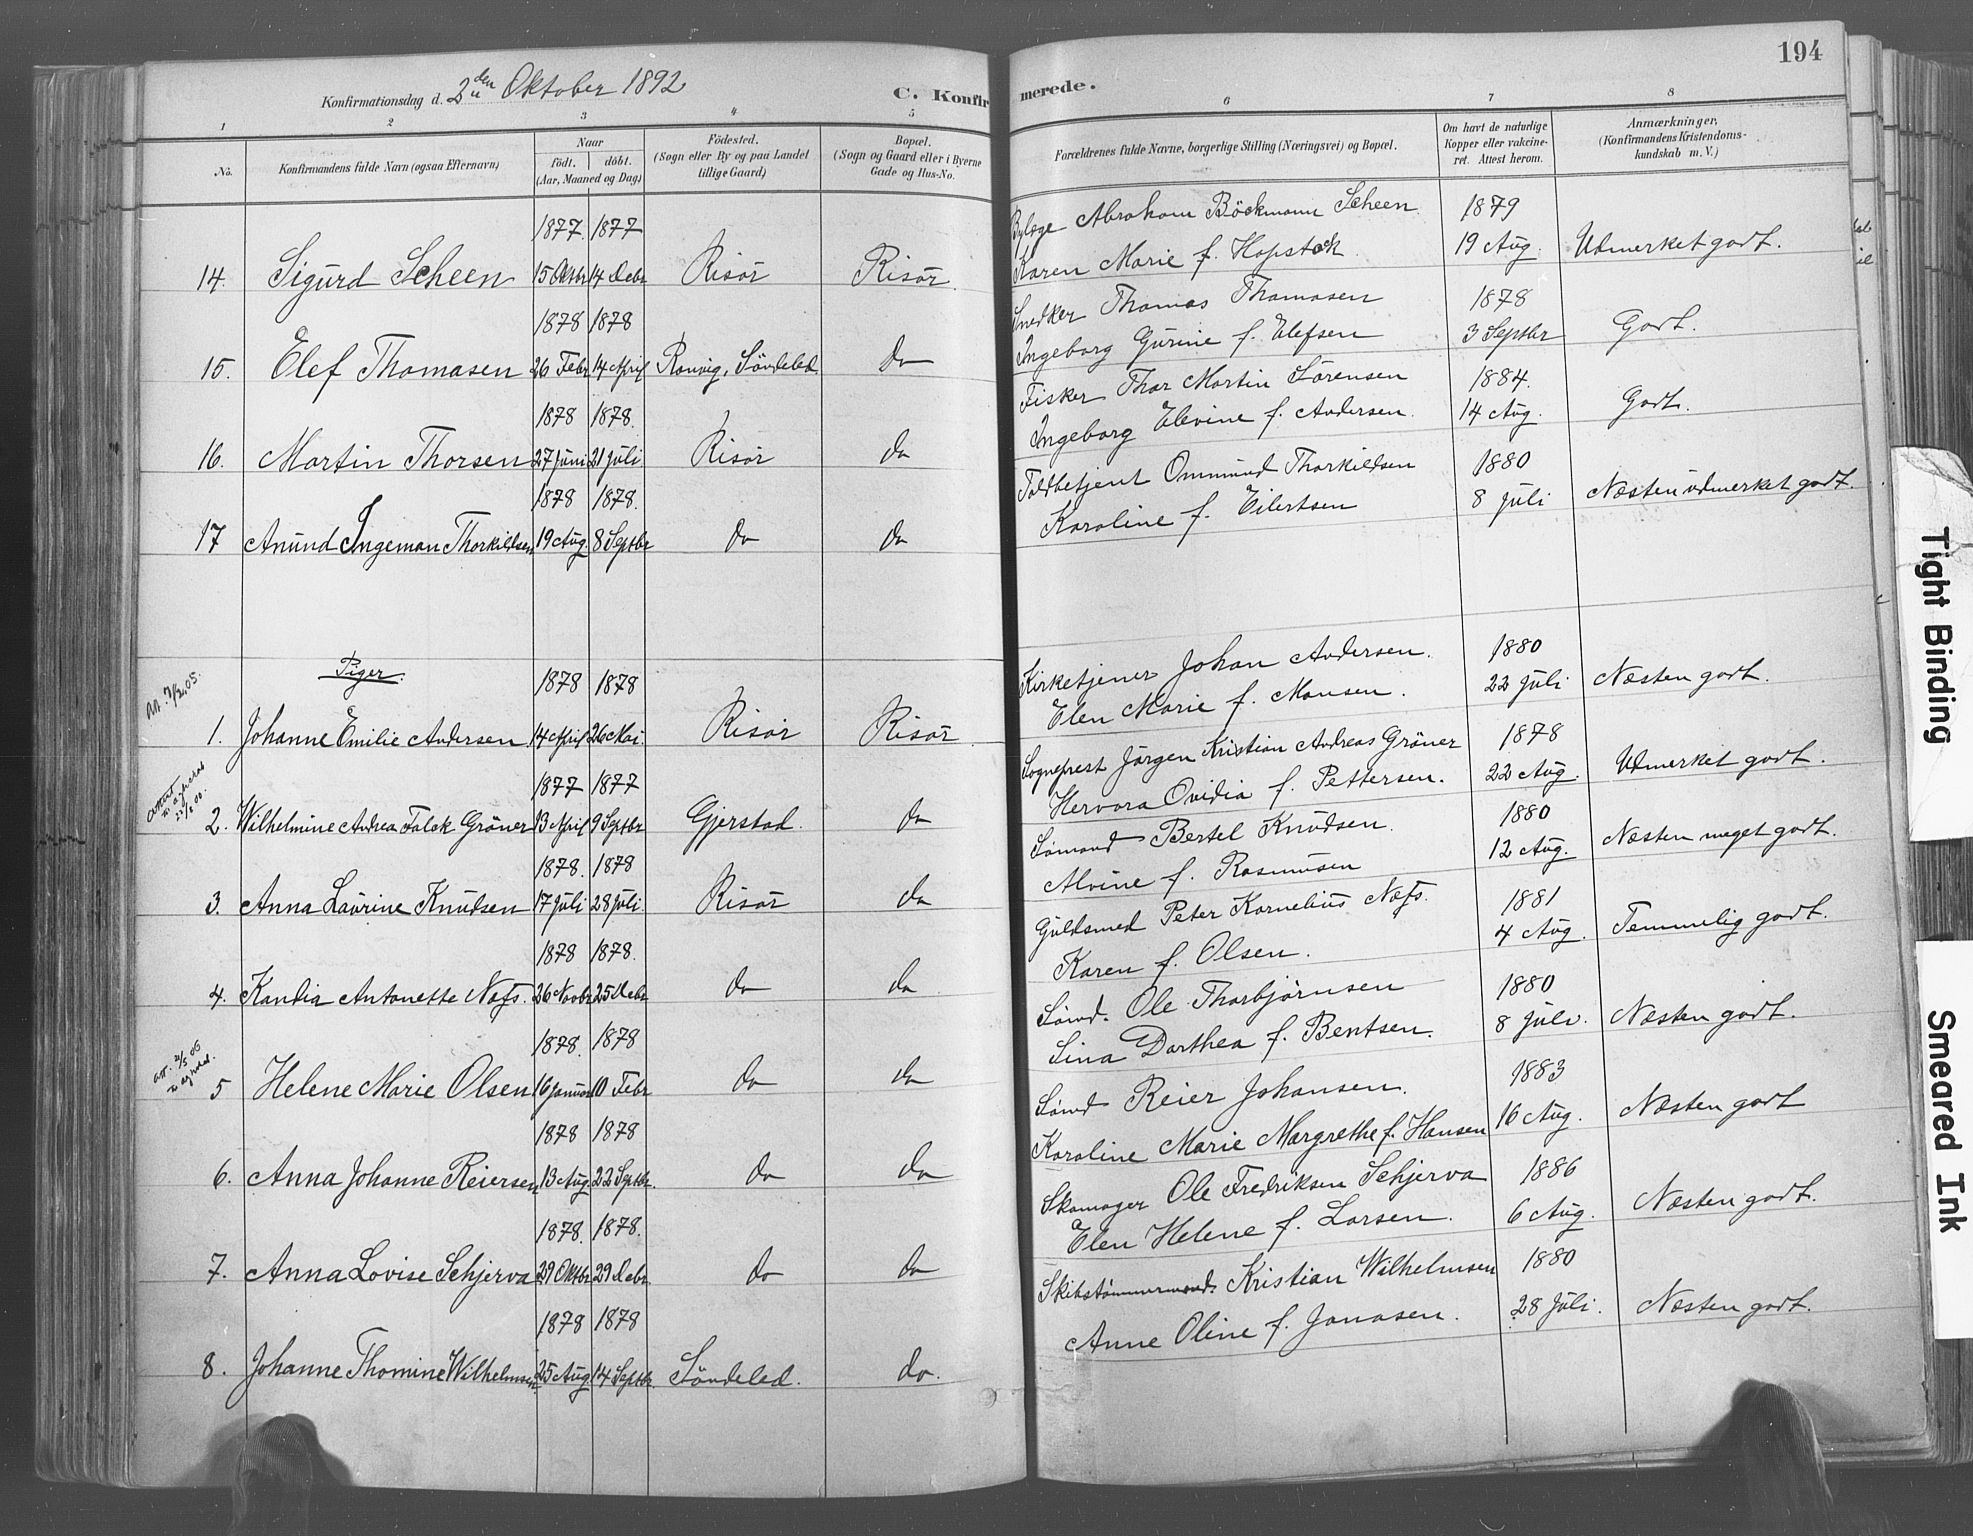 194
Konfirmationsdag d. 2den Oktober 1892
C. Konfirmerede.
1 2 3 4 5 6 7 8
No. Konfirmandens fulde Navn (ogsaa Efternavn) Naar født. døbt. (Aar, Maaned og Dag) Fødested. (Sogn eller By og paa Landet tillige Gaard) Bopæl. (Sogn og Gaard eller i Byerne Gade og Hus-No. Forældrenes fulde Navne, borgerlige Stilling (Næringsvei) og Bopæl. Om havt de naturlige Kopper eller vaccineret. Attest herom. Anmærkninger, (Konfirmandens Kristendomskundskab m. V.)
1877. 1877 Abraham Böckmann Scheen. 1879
14. Sigurd Scheen 15 Oktbr 14 Debr Risör Risör. Karen Marie f. Hopstock 19 Aug. Udmerket godt.
1878 1878 Snedker Thomas Thomasen 1878
15. Elef Thomasen 26 Febr 14 April Ranvig, Söndeled. do Ingeborg Gurine f. Elefsen 3 Septbr Godt.
1878 1878. Fisker Thor Martin Sörensen 1884.
16. Martin Thorsen 27 Juni 21 Juli Risör do Ingeborg Elevine f. Andersen. 14 Aug. Godt.
1878 1878. Toldbetjent Ommund Thorkildsen 1880
17 Anund Ingeman Thorkildsen 19 Aug 8 Septbr do do Karoline f. Eilertsen 8 Juli Næsten udmerket godt.
Piger.
1878 1878 Kirketjener Johan Andersen. 1880
1. Johanne Emilie Andersen 14 April 26 Mai. Risör Risör Elen Marie f. Monsen. 22 Juli Næsten godt.
1877 1877 Sogneprest Jörgen Kristian Andreas Gröner 1878
2. Wilhelmine Andrea Falck Gröner 13 April 9 Septbr Gjerstad. do Hervora Ovidia f. Pettersen. 22 Aug. Udmerket godt.
1878. 1878 Sömand Bertel Knudsen. 1880
3. Anna Laurine Knudsen 17 Juli 28 Juli. Risör do Alvine f. Rasmusen 12 Aug. Næsten meget godt.
1878 1878. Guldsmed Peter Kornelius Næfs. 1881
4. Kandia Antonette Næfs. 26 Novbr 25 Debr do do Karen f. Olsen. 4 Aug. Temmelig godt.
1878. 1878 Sömd. Ole Thorbjörnsen 1880
5 Helene Marie Olsen 16 Januar 10 Febr do do Lina Dorthea f. Bentsen. 8 Juli. Næsten godt.
1878 1878 Sömd Reier Johansen. 1883
6. Anna Johanne Reiersen 13 Aug 22 Septbr. do do Karoline Marie Margrethe f. Hansen 16 Aug. Næsten godt
1878. 1878. Skomager Ole Fredriksen Schjerva 1886
7. Anna Lovise Schjerva 29 Oktbr 29 Debr do do Elen Helene f. Larsen. 6 Aug. Næsten godt.
1878 1878 Skibstömmermand. Kristian Wilhelmsen 1880
8. Johanne Thomine Wilhelmsen 25 Aug 14 Septbr. Söndeled. do. Anne Oline f. Jonasen. 28 Juli. Næsten godt.
Tight Binding
Smeared Ink